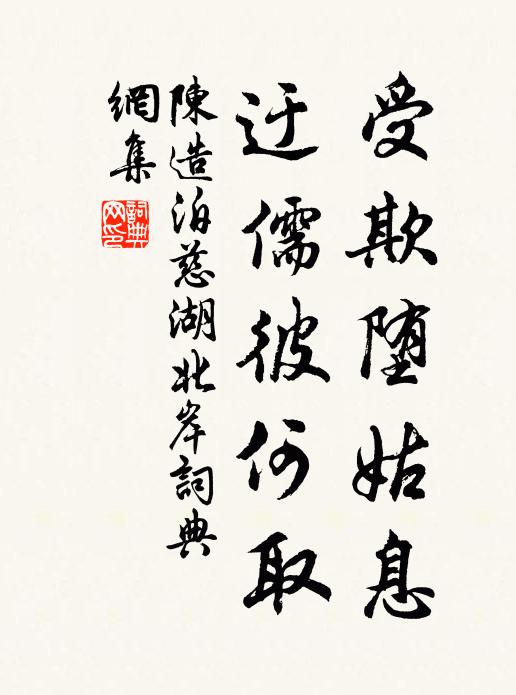 受欺堕姑息
迂儒彼何取
陳造泊慈湖北岸詞典
網集
詞典
网印